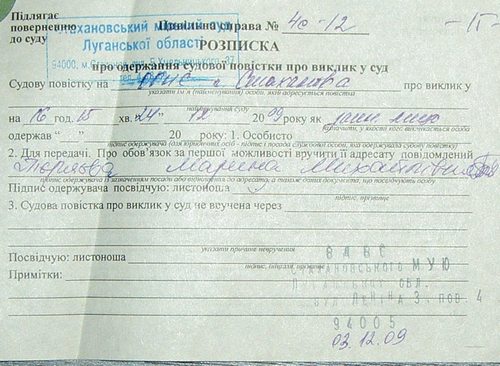 Підлягає
поверненню
до суду
Стахановський міський суд
Луганської області
94000, м.Стаханов, вул. Б.Хмельницького, 37
тел.
Цивільна справа № 4с-12 -15-
РОЗПИСКА
про одержання судової повістки про виклик у суд
Судову повістку на ВДВС м Стаханова про виклик у
вказати ім'я (найменування) особи, якій адресується повістка
найменування суду
на 16 год. 15 хв. "24" 12 2009 року як
зазначити, у якості кого викликається особа
одержав " " 20 року: 1. Особисто
підпис одержувача (для юридичних осіб - підпис і посада службової особи, яка одержала судову повістку)
2. Для передачі. Про обов'язок за першої можливості вручити її адресату повідомлений
Марина Михайлівна
підпис одержувача із зазначенням посади або відношення до адресата, а також даних документа, що посвідчують особу
Підпис одержувача посвідчую: листоноша
підпис, прізвище
3. Судова повістка про виклик у суд не вручена через
указати причини невручення
Посвідчую: листоноша
підпис, ініціали, прізвище
Примітки:
ВДВС
СТАХАНОВСЬКОГО МУЮ
ЛУГАНСЬКОЇ ОБЛ.
ВУЛ ЛЕНІНА 3, пов. 4
94005
03.12.09